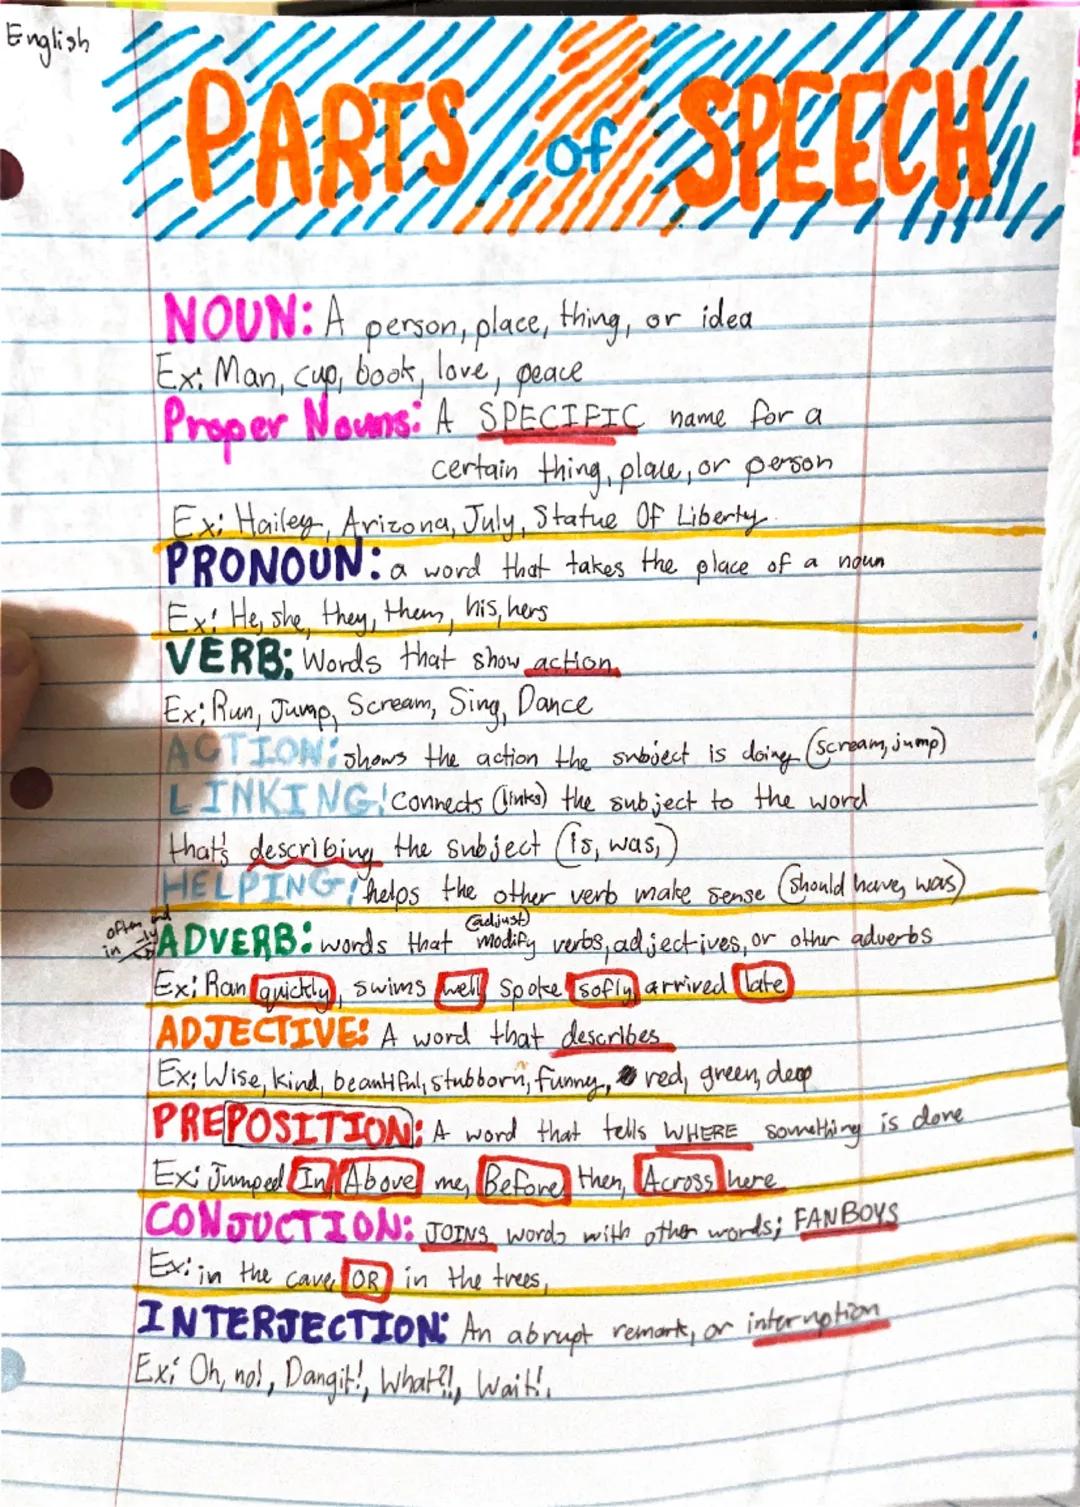 English
PARTS of SPEECH
NOUN: A person, place, thing, or idea
Ex: Man, cup, book, love, peace
Proper Nouns: A SPECIFIC name for a
certain thing, place, or person
Ex: Hailey, Arizona, July, Statue Of Liberty
PRONOUN: a word that takes the place of a noun
Ex: He, she, they, them, his, hers
VERB: Words that show action
Ex: Run, Jump, Scream, Sing, Dance
ACTION: shows the action the subject is doing (scream, jump)
LINKING: Connects (links) the subject to the word
that's describing the subject (is, was,)
HELPING: helps the other verb make sense (should have, was)
often end in -ly
(adjust)
ADVERB: words that modify verbs, adjectives, or other adverbs
Ex: Ran quickly, swims well, spoke sofly, arrived late
ADJECTIVE: A word that describes
Ex: Wise, kind, beautiful, stubborn, funny, red, green, deep
PREPOSITION: A word that tells WHERE something is done
Ex: Jumped In, Above me, Before then, Across here
CONJUCTION: JOINS words with other words; FANBOYS
Ex: in the cave, OR in the trees,
INTERJECTION: An abrupt remark, or interruption
Ex: Oh, no!, Dangit!, What?!, Wait!,